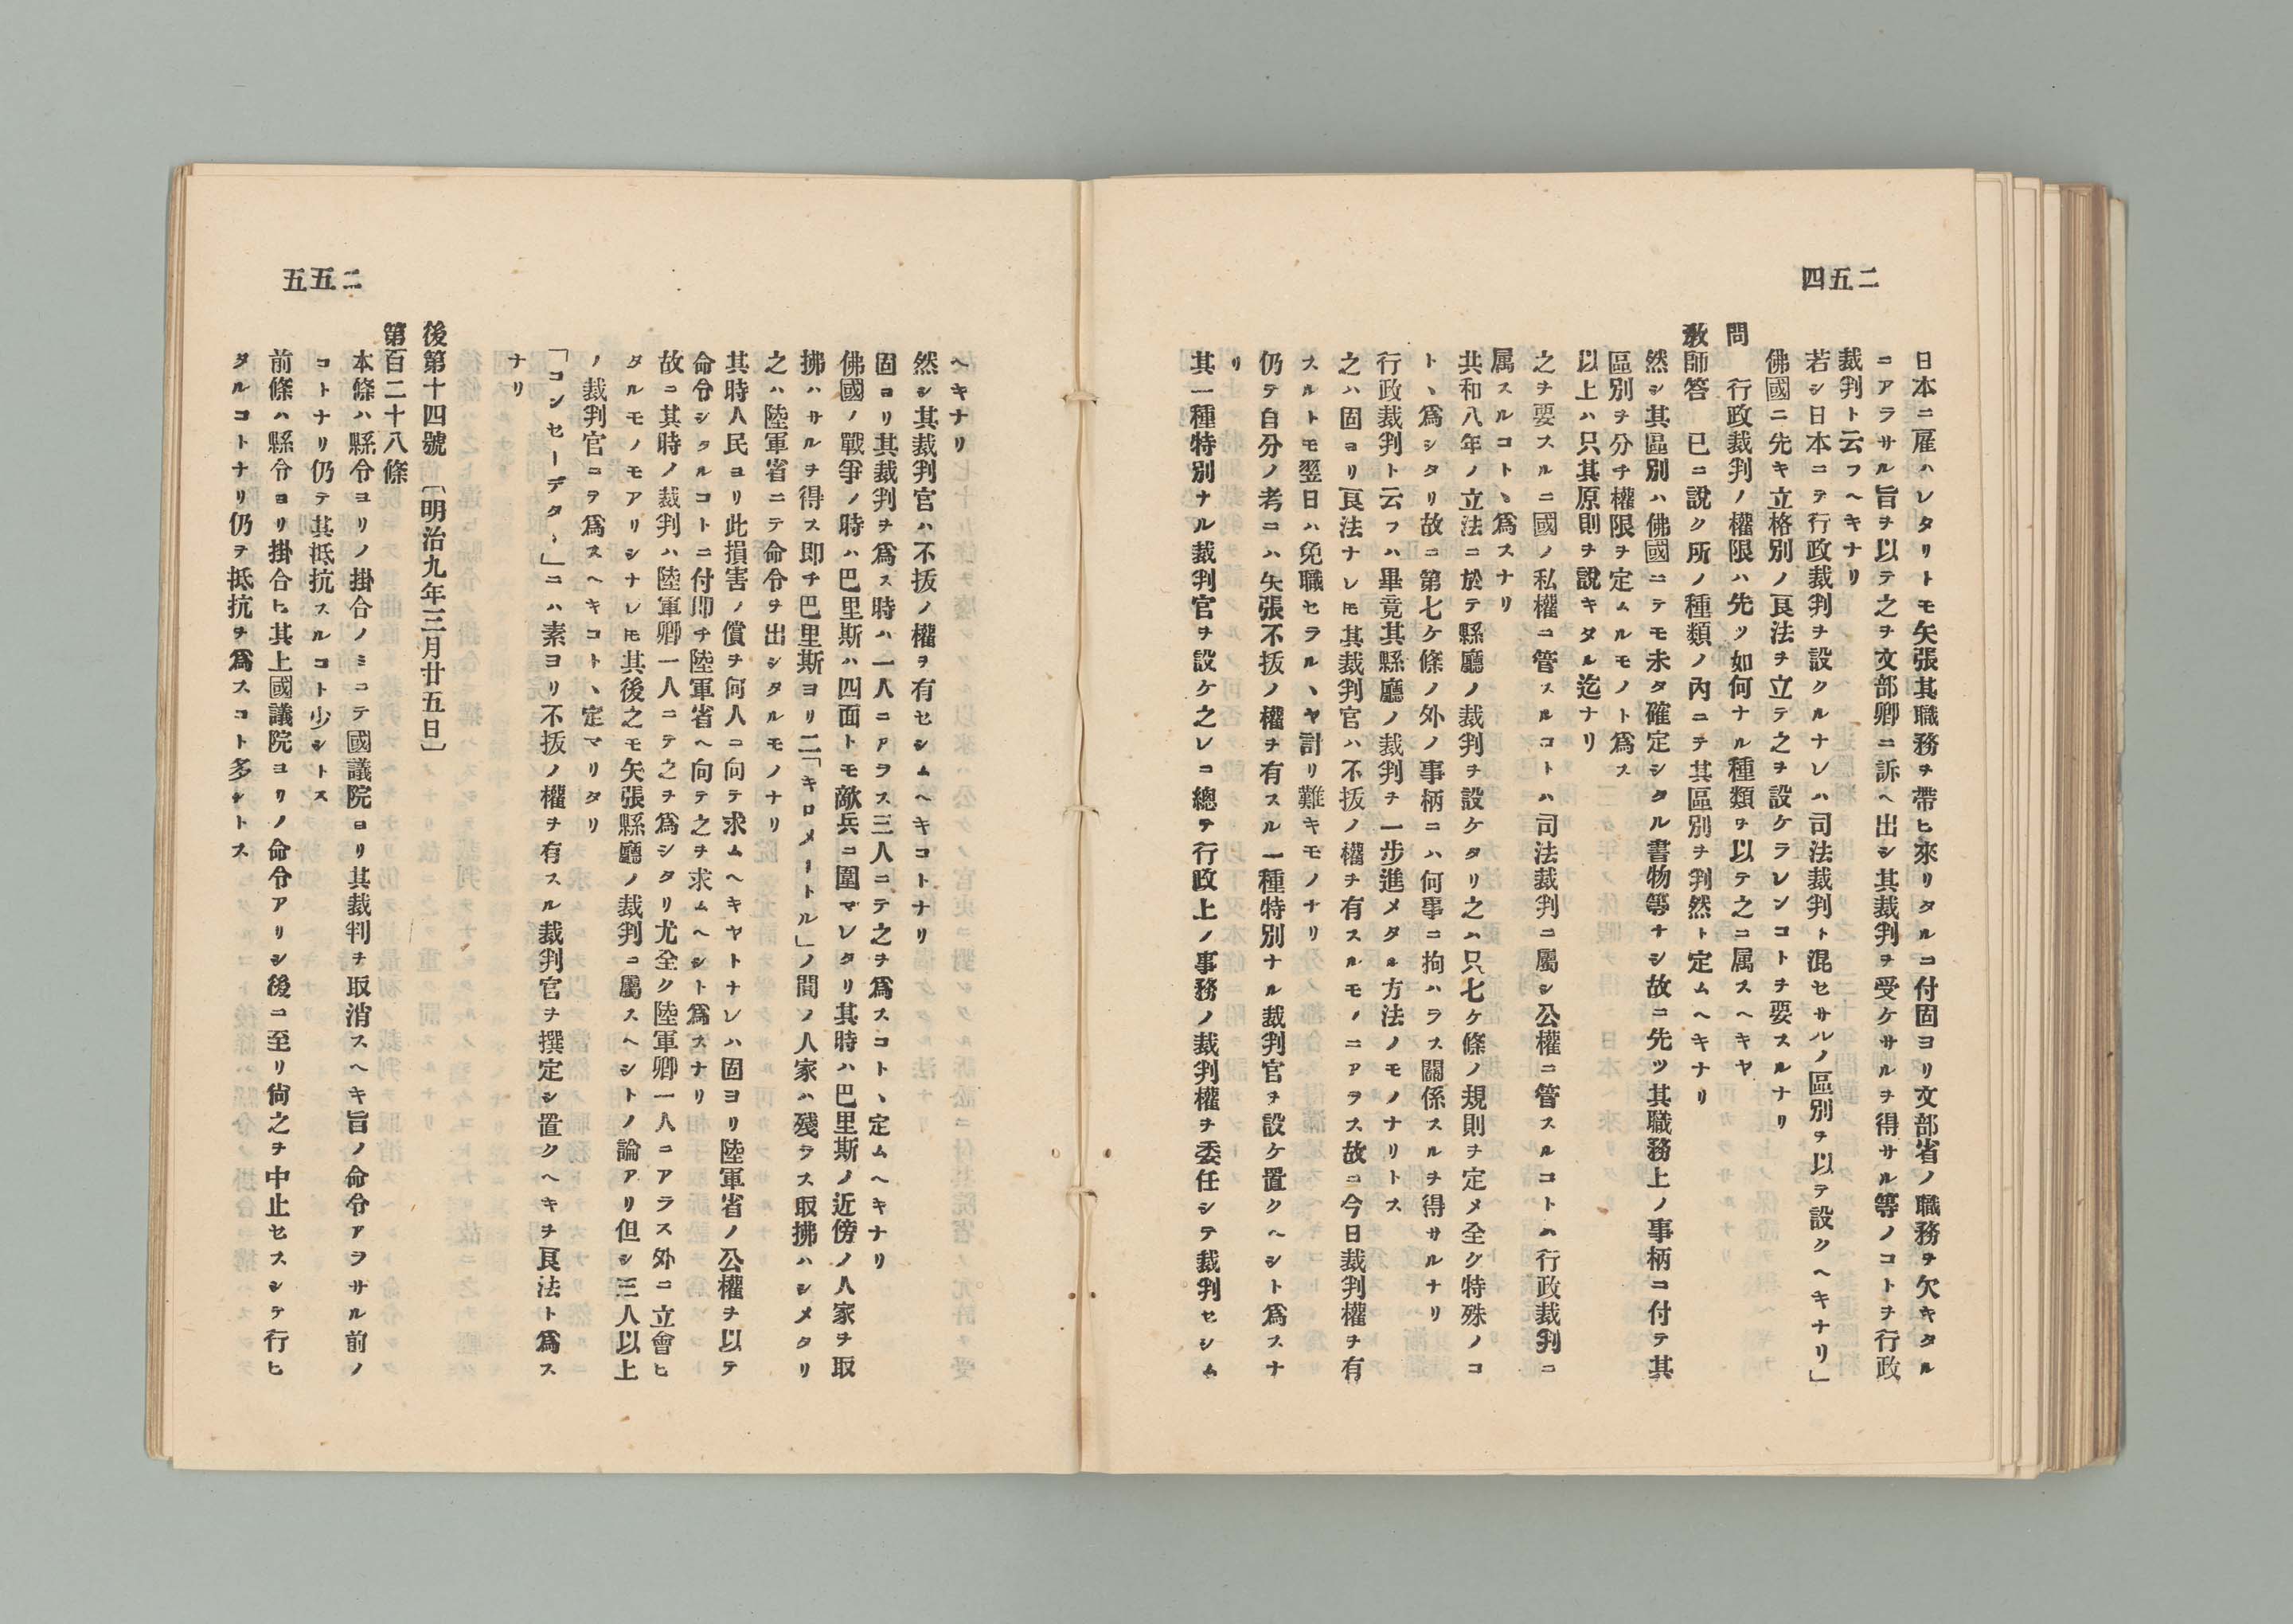 二五四
日本ニ雇ハレタリトモ矢張其職務ヲ帶ヒ來リタルニ付固ヨリ文部省ノ職務ヲ欠キタル
ニアラサル旨ヲ以テ之ヲ文部卿ニ訴ヘ出シ其裁判ヲ受ケサルヲ得サル等ノコトヲ行政
裁判ト云フヘキナリ
若シ日本ニテ行政裁判ヲ設クルナレハ司法裁判ト混セサルノ區別ヲ以テ設クヘキナリ」
佛國ニ先キ立格別ノ良法ヲ立テ之ヲ設ケラレンコトヲ要スルナリ
問　行政裁判ノ權限ハ先ツ如何ナル種類ヲ以テ之ニ属スヘキヤ
敎師答　已ニ說ク所ノ種類ノ內ニテ其區別ヲ判然ト定ムヘキナリ
然シ其區別ハ佛國ニテモ未タ確定シタル書物等ナシ故ニ先ツ其職務上ノ事柄ニ付テ其
區別ヲ分チ權限ヲ定ムルモノト爲ス
以上ハ只其原則ヲ說キタル迄ナリ
之ヲ要スルニ國ノ私權ニ管スルコトハ司法裁判ニ屬シ公權ニ管スルコトハ行政裁判ニ
属スルコトヽ爲スナリ
共和八年ノ立法ニ於テ縣廳ノ裁判ヲ設ケタリ之ハ只七ケ條ノ規則ヲ定メ全ク特殊ノコ
トヽ爲シタリ故ニ第七ケ條ノ外ノ事柄ニハ何事ニ拘ハラス關係スルヲ得サルナリ
行政裁判ト云フハ畢竟其縣廳ノ裁判ヲ一步進メタル方法ノモノナリトス
之ハ固ヨリ良法ナレ𪜈其裁判官ハ不拔ノ權ヲ有スルモノニアラス故ニ今日裁判權ヲ有
スルトモ翌日ハ免職セラルヽヤ計リ難キモノナリ
仍テ自分ノ考ニハ矢張不拔ノ權ヲ有スル一種特別ナル裁判官ヲ設ケ置クヘシト爲スナ
リ
其一種特別ナル裁判官ヲ設ケ之レニ總テ行政上ノ事務ノ裁判權ヲ委任シテ裁判セシム
二五五
ヘキナリ
然シ其裁判官ハ不拔ノ權ヲ有セシムヘキコトナリ
固ヨリ其裁判ヲ爲ス時ハ一人ニアラス三人ニテ之ヲ爲スコトヽ定ムヘキナリ
佛國ノ戰爭ノ時ハ巴里斯ハ四面トモ敵兵ニ圍マレタリ其時ハ巴里斯ノ近傍ノ人家ヲ取
拂ハサルヲ得ス即チ巴里斯ヨリ二「キロメートル」ノ間ノ人家ハ殘ラス取拂ハシメタリ
之ハ陸軍省ニテ命令ヲ出シタルモノナリ
其時人民ヨリ此損害ノ償ヲ何人ニ向テ求ムヘキヤトナレハ固ヨリ陸軍省ノ公權ヲ以テ
命令シタルコトニ付卽チ陸軍省ヘ向テ之ヲ求ムヘシト爲スナリ
故ニ其時ノ裁判ハ陸軍卿一人ニテ之ヲ爲シタリ尤全ク陸軍卿一人ニアラス外ニ立會ヒ
タルモノモアリシナレ𪜈其後之モ矢張縣廳ノ裁判ニ屬スヘシトノ論アリ但シ三人以上
ノ裁判官ニヲ爲スヘキコトヽ定マリタリ
「コンセーデターヽ」ニハ素ヨリ不拔ノ權ヲ有スル裁判官ヲ撰定シ置クヘキヲ良法ト爲ス
ナリ
後第十四號　〔明治九年三月廿五日〕
第百二十八條
本條ハ縣令ヨリノ掛合ノミニテ國議院ヨリ其裁判ヲ取消スヘキ旨ノ命令アラサル前ノ
コトナリ仍テ其抵抗スルコト少シトス
前條ハ縣令ヨリ掛合ヒ其上國議院ヨリノ命令アリシ後ニ至リ尙之ヲ中止セスシテ行ヒ
タルコトナリ仍ヲ抵抗ヲ爲スコト多シトス